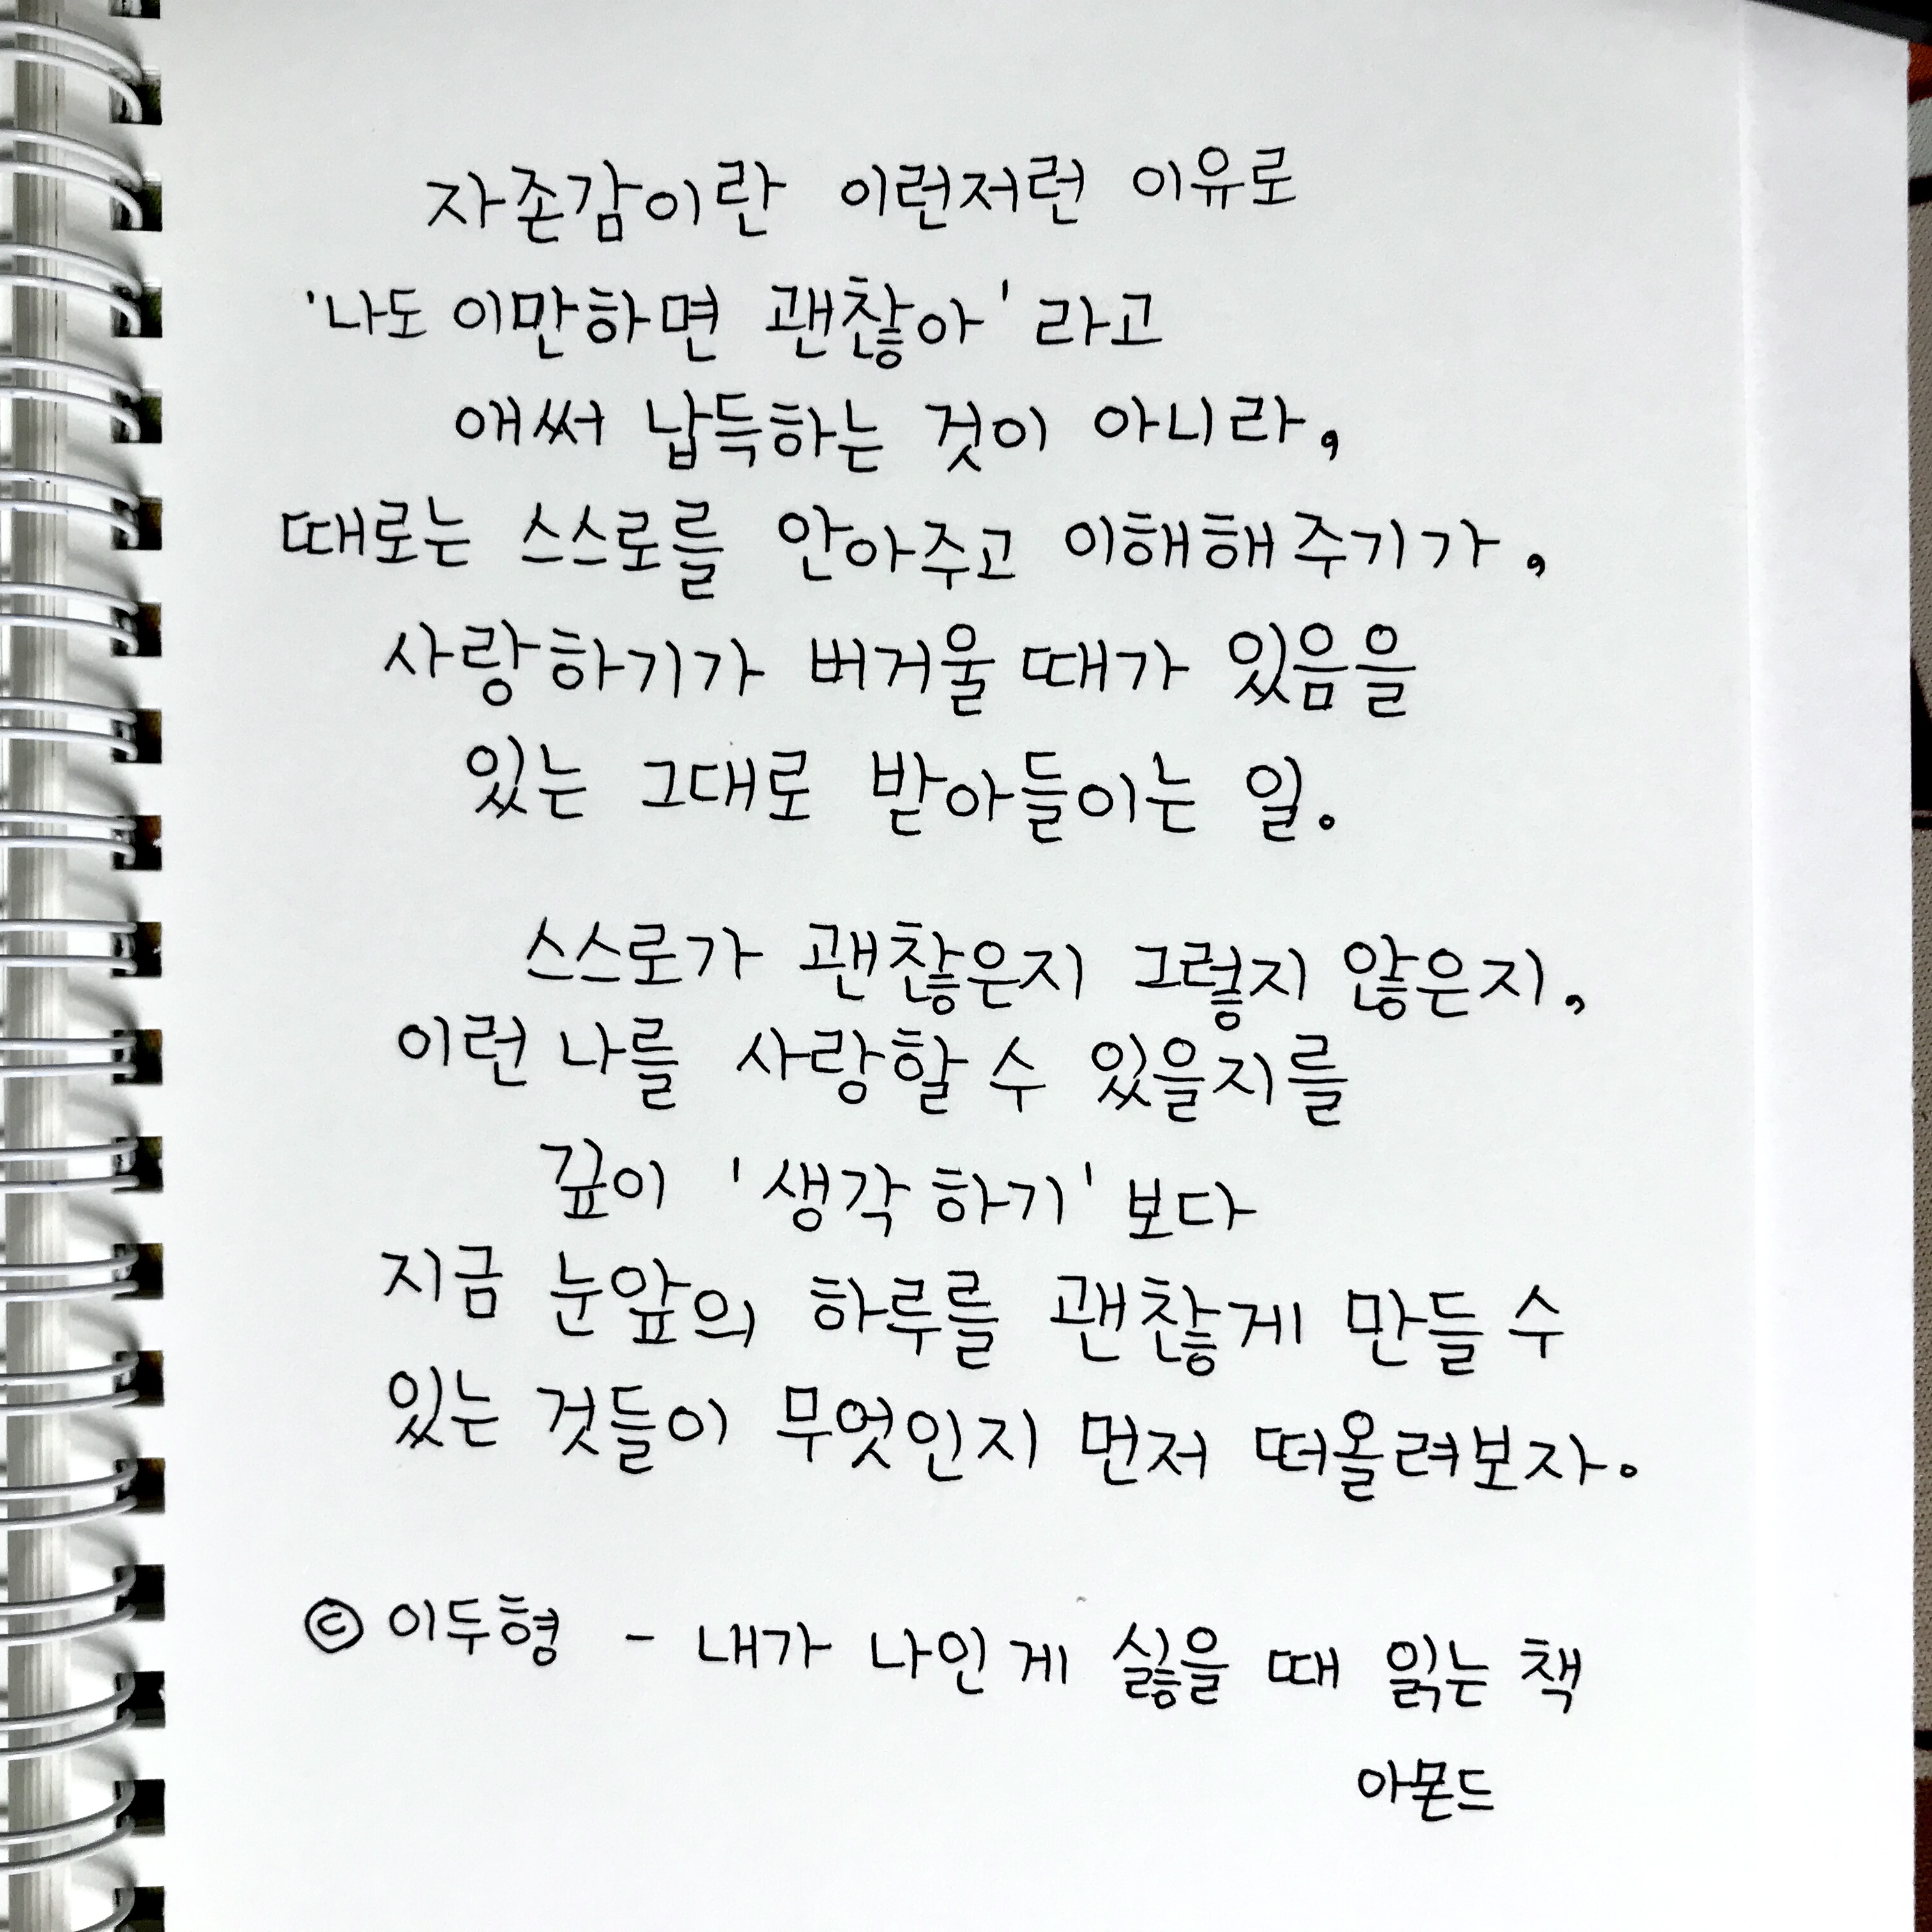 자존감이란 이런저런 이유로
'나도 이만하면 괜찮아' 라고
애써 납득하는 것이 아니라,
때로는 스스로를 안아주고 이해해 주기가,
사랑하기가 버거울 때가 있음을
있는 그대로 받아들이는 일.
스스로가 괜찮은지 그렇지 않은지,
이런 나를 사랑할 수 있을지를
깊이 '생각하기' 보다
지금 눈앞의 하루를 괜찮게 만들 수
있는 것들이 무엇인지 먼저 떠올려보자.
© 이두형 - 내가 나인 게 싫을 때 읽는 책
아몬드